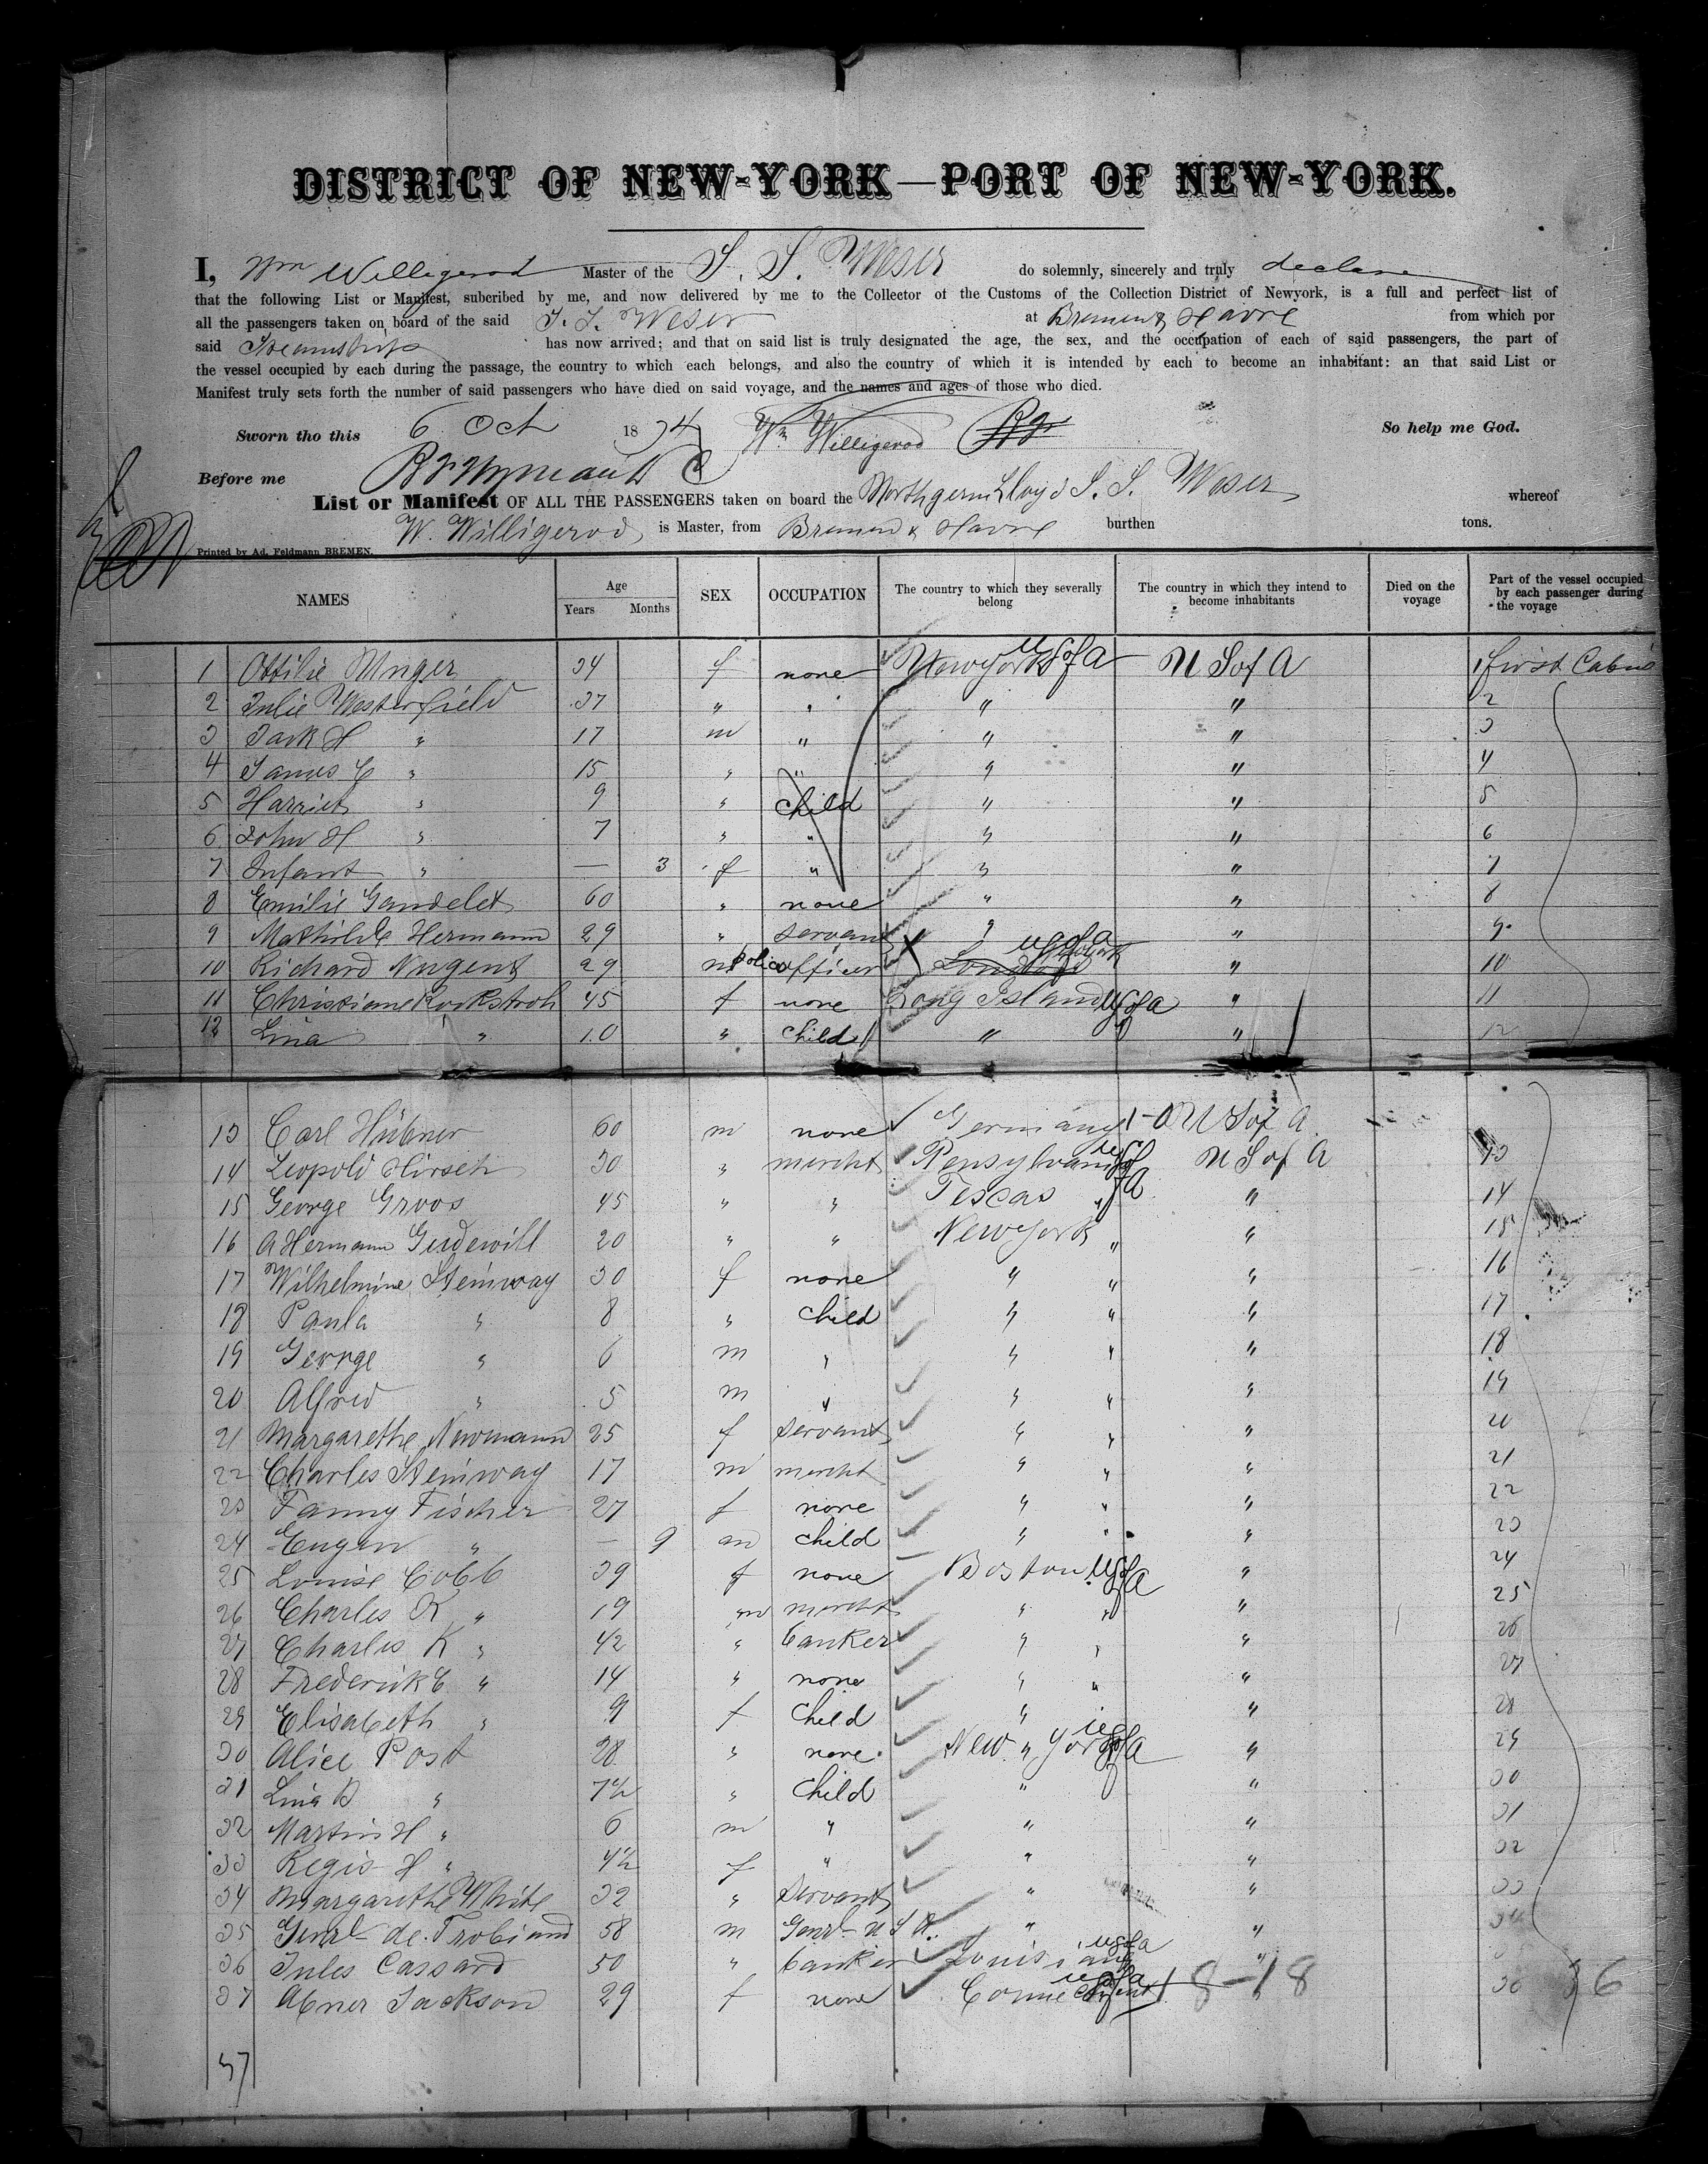 DISTRICT OF NEW-YORK—PORT OF NEW-YORK.
I, Wm Willigerod Master of the S. S. Weser do solemnly, sincerely and truly declare
that the following List or Manifest, subcribed by me, and now delivered by me to the Collector of the Customs of the Collection District of Newyork, is a full and perfect list of
all the passengers taken on board of the said S. S. Weser at Bremen & Havre from which por
said Steamship has now arrived; and that on said list is truly designated the age, the sex, and the occupation of each of said passengers, the part of
the vessel occupied by each during the passage, the country to which each belongs, and also the country of which it is intended by each to become an inhabitant: an that said List or
Manifest truly sets forth the number of said passengers who have died on said voyage, and the names and ages of those who died.
Sworn tho this 6 Oct 1874 Wm Willigerod So help me God.
Before me
List or Manifest OF ALL THE PASSENGERS taken on board the Northgerm Lloyd S. S. Weser whereof
W. Willigerod is Master, from Bremen & Havre burthen tons.
Printed by Ad. Feldmann BREMEN.
NAMES Age Years Months SEX OCCUPATION The country to which they severally belong The country in which they intend to become inhabitants Died on the voyage Part of the vessel occupied by each passenger during the voyage
1 Ottilie Unger 34 f none New York US of A U S of A 1 first Cabin
2 Julie Westerfield 37 " " " " 2
3 Jack H " 17 m " " " 3
4 James C " 15 " " " " 4
5 Harriet " 9 " child " " 5
6 John H " 7 " " " " 6
7 Infant " — 3 f " " " 7
8 Emilie Gandelet 60 " none " " 8
9 Mathilde Hermann 29 " servant " " 9
10 Richard Nugent 29 m police officer US of A " 10
11 Christiane Rockstroh 45 f none Long Island US of A " 11
12 Lina " 10 " child " " 12
13 Carl Hübner 60 m none Germany 1-0 U S of A
14 Leopold Hirsch 30 " mercht Pensylvania US of A U S of A 13
15 George Groos 45 " " Texas " " 14
16 A Hermann Gudewill 20 " " New York " " 15
17 Wilhelmine Steinway 30 f none " " " 16
18 Paula " 8 " child " " " 17
19 George " 6 m " " " " 18
20 Alfred " 5 m " " " " 19
21 Margarethe Newmann 25 f servant " " " 20
22 Charles Steinway 17 m mercht " " " 21
23 Fanny Fischer 27 f none " " " 22
24 Eugen " — 9 m child " " " 23
25 Louise Cobb 39 f none Boston US of A " 24
26 Charles K " 19 m mercht " " " 25
27 Charles K " 42 " banker " " " 26
28 Frederik C " 14 " none " " " 27
29 Elisabeth " 9 f child " " 28
30 Alice Post 28 " none New York US of A " 29
31 Lina B " 7½ " child " " 30
32 Martin H " 6 m " " " 31
33 Regis H " 4½ f " " " 32
34 Margarethe White 32 " servant " " 33
35 Genrl de Trobiand 58 m Genrl U S A. " " 34
36 Jules Cassard 50 " banker Louisiana US of A "
37 Abner Jackson 29 f none US of A 18-18 36 36
37